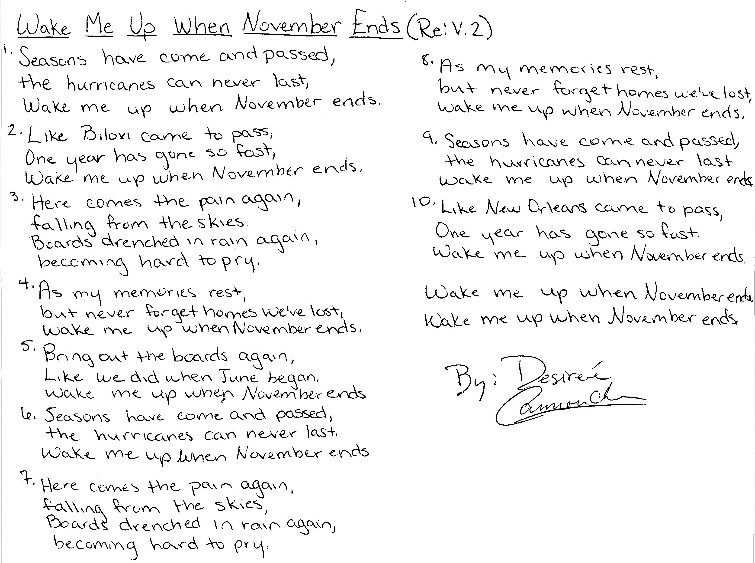 Wake Me Up When November Ends (Re: V.2)
1. Seasons have come and passed,
the hurricanes can never last,
Wake me up when November ends.
2. Like Biloxi came to pass,
One year has gone so fast,
Wake me up when November ends.
3. Here comes the pain again,
falling from the skies.
Boards drenched in rain again,
becoming hard to pry.
4. As my memories rest,
but never forget homes we've lost,
Wake me up when November ends.
5. Bring out the boards again,
Like we did when June began.
Wake me up when November ends
6. Seasons have come and passed,
the hurricanes can never last.
Wake me up when November ends
7. Here comes the pain again,
falling from the skies,
Boards drenched in rain again,
becoming hard to pry.
8. As my memories rest,
but never forget homes we've lost,
Wake me up when November ends.
9. Seasons have come and passed,
the hurricanes can never last
Wake me up when November ends
10. Like New Orleans came to pass,
One year has gone so fast.
Wake me up when November ends.
Wake me up when November ends
Wake me up when November ends
By: Desireé